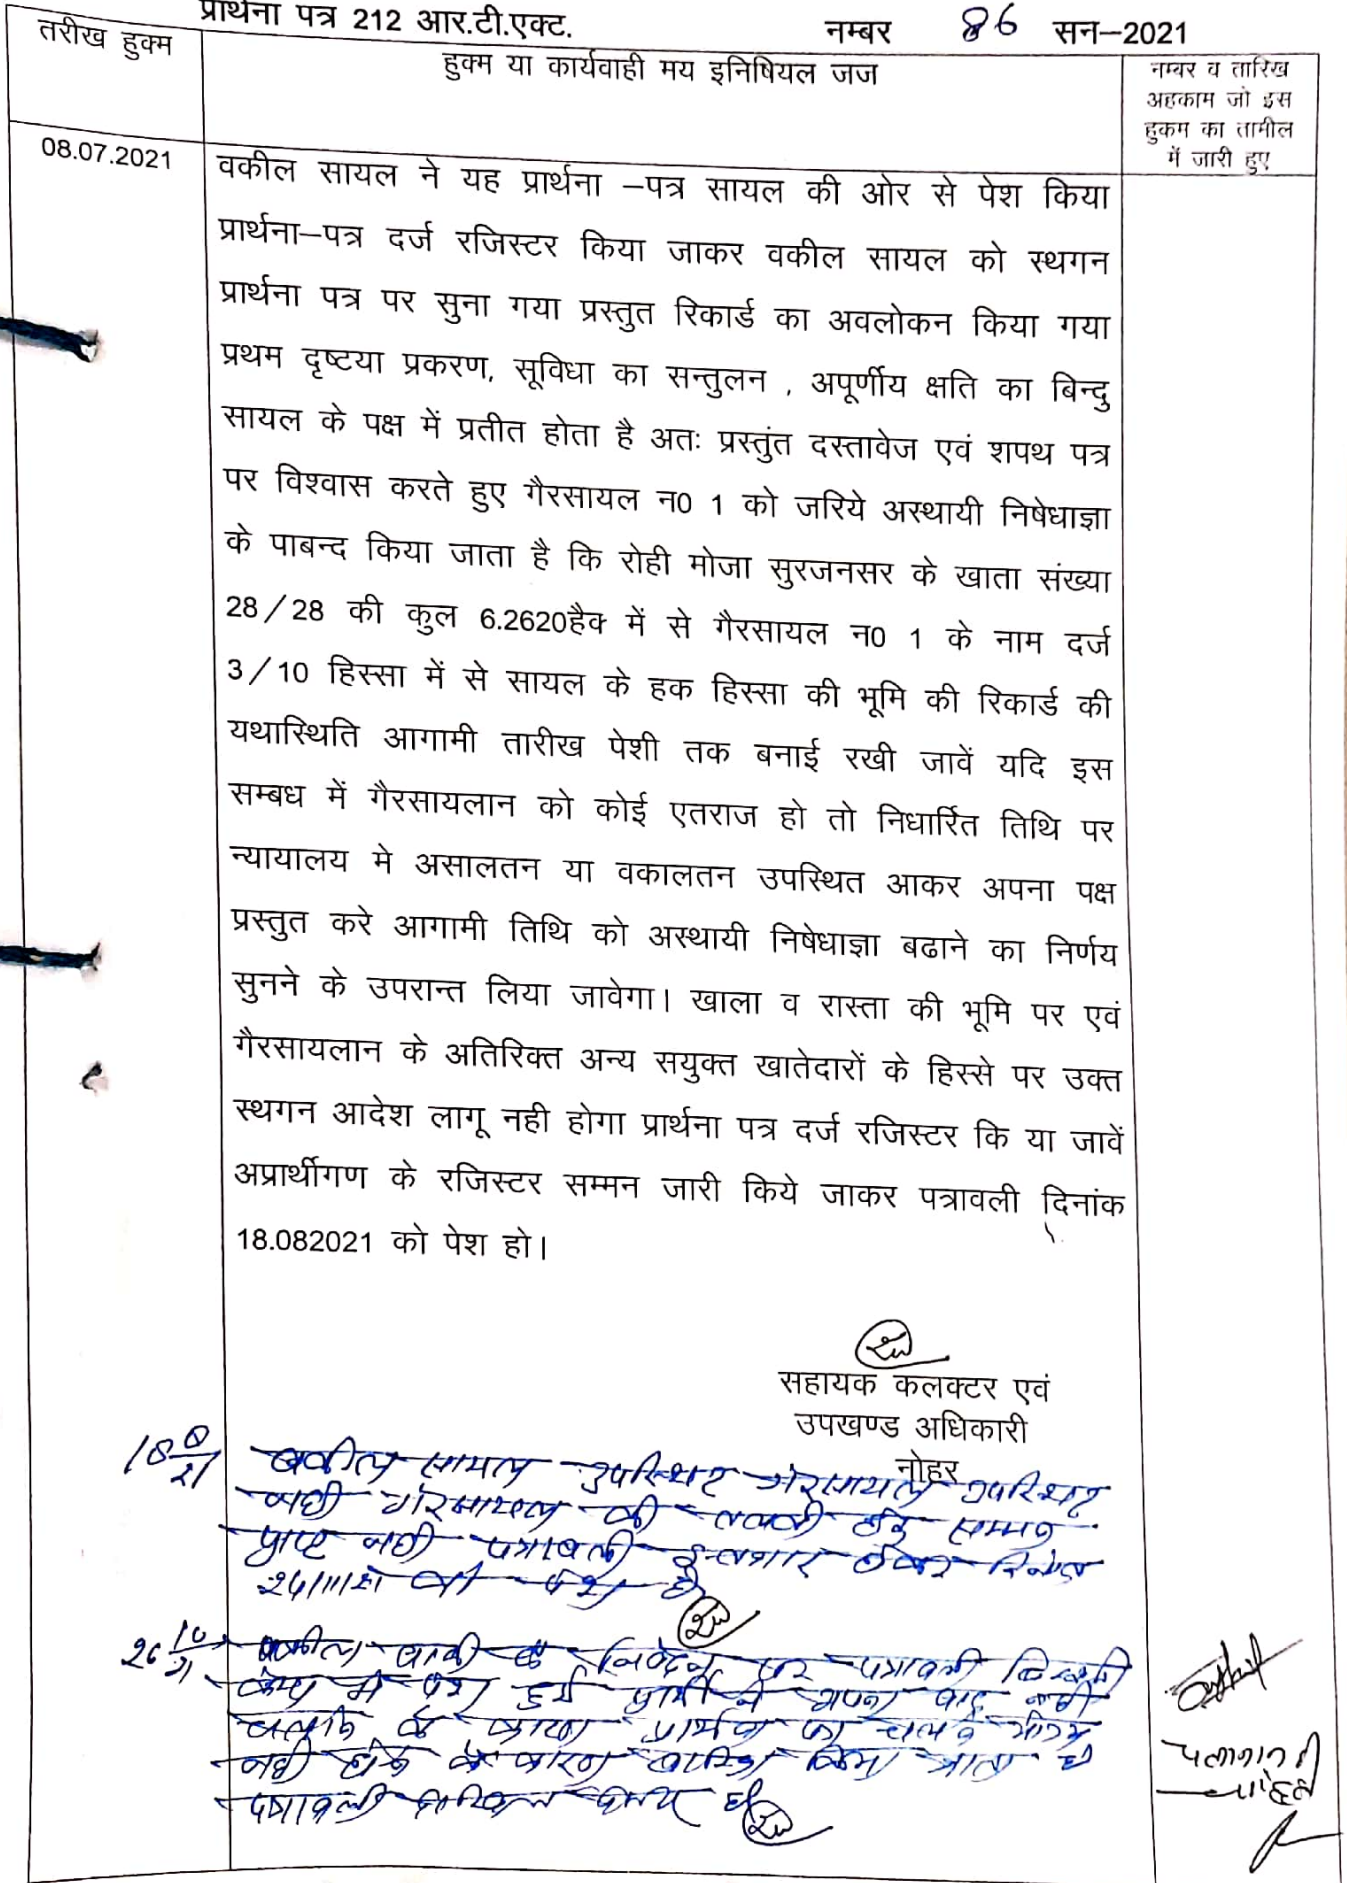 प्रार्थना पत्र 212 आर.टी.एक्ट. नम्बर 86 सन–2021
तरीख हुक्म
हुक्म या कार्यवाही मय इनिषियल जज
नम्वर व तारिख
अहकाम जो इस
हुकम का तामील
में जारी हुए
08.07.2021
वकील सायल ने यह प्रार्थना –पत्र सायल की ओर से पेश किया
प्रार्थना–पत्र दर्ज रजिस्टर किया जाकर वकील सायल को स्थगन
प्रार्थना पत्र पर सुना गया प्रस्तुत रिकार्ड का अवलोकन किया गया
प्रथम दृष्टया प्रकरण, सूविधा का सन्तुलन , अपूर्णीय क्षति का बिन्दु
सायल के पक्ष में प्रतीत होता है अतः प्रस्तुंत दस्तावेज एवं शपथ पत्र
पर विश्वास करते हुए गैरसायल न0 1 को जरिये अस्थायी निषेधाज्ञा
के पाबन्द किया जाता है कि रोही मोजा सुरजनसर के खाता संख्या
28/28 की कुल 6.2620हैक में से गैरसायल न0 1 के नाम दर्ज
3/10 हिस्सा में से सायल के हक हिस्सा की भूमि की रिकार्ड की
यथास्थिति आगामी तारीख पेशी तक बनाई रखी जावें यदि इस
सम्बध में गैरसायलान को कोई एतराज हो तो निधार्रित तिथि पर
न्यायालय मे असालतन या वकालतन उपस्थित आकर अपना पक्ष
प्रस्तुत करे आगामी तिथि को अस्थायी निषेधाज्ञा बढाने का निर्णय
सुनने के उपरान्त लिया जावेगा। खाला व रास्ता की भूमि पर एवं
गैरसायलान के अतिरिक्त अन्य सयुक्त खातेदारों के हिस्से पर उक्त
स्थगन आदेश लागू नही होगा प्रार्थना पत्र दर्ज रजिस्टर कि या जावें
अप्रार्थीगण के रजिस्टर सम्मन जारी किये जाकर पत्रावली दिनांक
18.082021 को पेश हो।
सहायक कलक्टर एवं
उपखण्ड अधिकारी
नोहर
18 8/21 वकील सायल उपस्थित गैरसायल उपस्थित
नही गैरसायल की तलबी हेतु सम्मन
प्राप्त नही पत्रावली इन्तजार होकर दिनांक
को पेश हो
26 10/21 वकील वादी के निवेदन पर पत्रावली
केम्प मे पेश हुई प्रार्थी ने अपना वाद नही
चलाने के कारण प्रार्थना पत्र चलने योग्य
नही होने के कारण खारिज किया जाता है
पत्रावली दाखिल दफ्तर हो